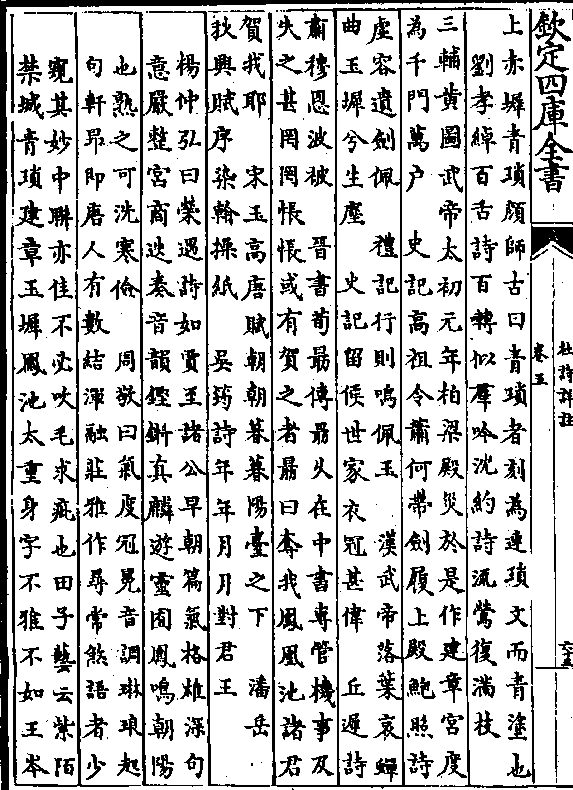 欽定四庫全書
杜詩詳註
卷五
六十五
上赤墀青瑣顔師古曰青瑣者刻為連瑣文而青塗也
劉孝綽百舌詩百轉似羣吟沈約詩流鶯復滿枝
三輔黄圖武帝太初元年柏梁殿災於是作建章宫度
為千門萬户 史記高祖令蕭何帶劍履上殿鮑照詩
虚容遺劍佩 禮記行則鳴佩玉 漢武帝落葉哀蟬
曲玉墀兮生塵 史記留侯世家衣冠甚偉 丘遲詩
肅穆恩波被 晉書荀朂傳朂久在中書專管機事及
失之甚罔罔悵悵或有賀之者朂曰奪我鳳凰池諸君
賀我耶 宋玉高唐賦朝朝暮暮陽臺之下 潘岳
秋興賦序染翰操紙 吳筠詩年年月月對君王
楊仲弘曰榮遇詩如賈至諸公早朝篇氣格雄深句
意嚴整宫商迭奏音韻鏗鏘真麟遊靈囿鳳鳴朝陽
也熟之可洗寒儉 周敬曰氣度冠冕音調琳琅起
句軒昂即唐人有數結渾融莊雅作尋常煞語者少
窺其妙中聯亦佳不必吹毛求疵也田子藝云紫陌
禁城青瑣建章玉墀鳳池太重身字不雅不如王岑